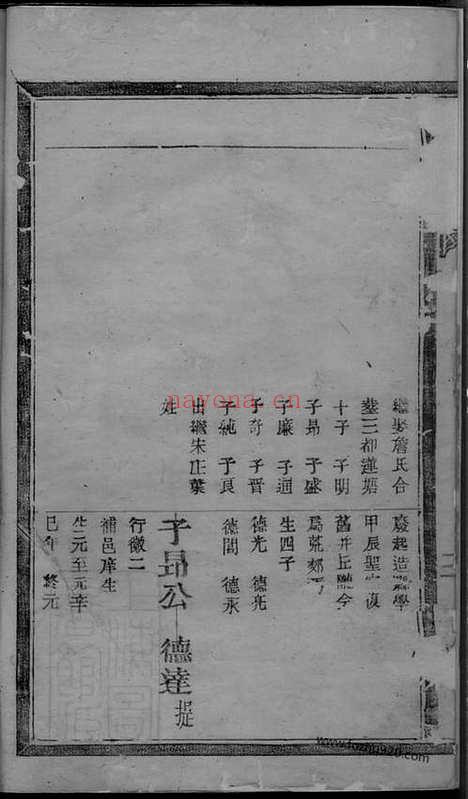 繼娶詹氏合
塟三都蓮塘
十子 子明
子昂 子盛
子廉 子通
子奇 子晉
子純 子良
出繼宋庄葉
姓
起造 學
甲辰聖 復
舊井丘 今
爲荒郊
生四子
德光 德亮
德閏 德永
子昂公 德達 提
行徽二
補邑庠生
生元至元辛
巳年 終元
nayona.cn
www.fozhu920.com